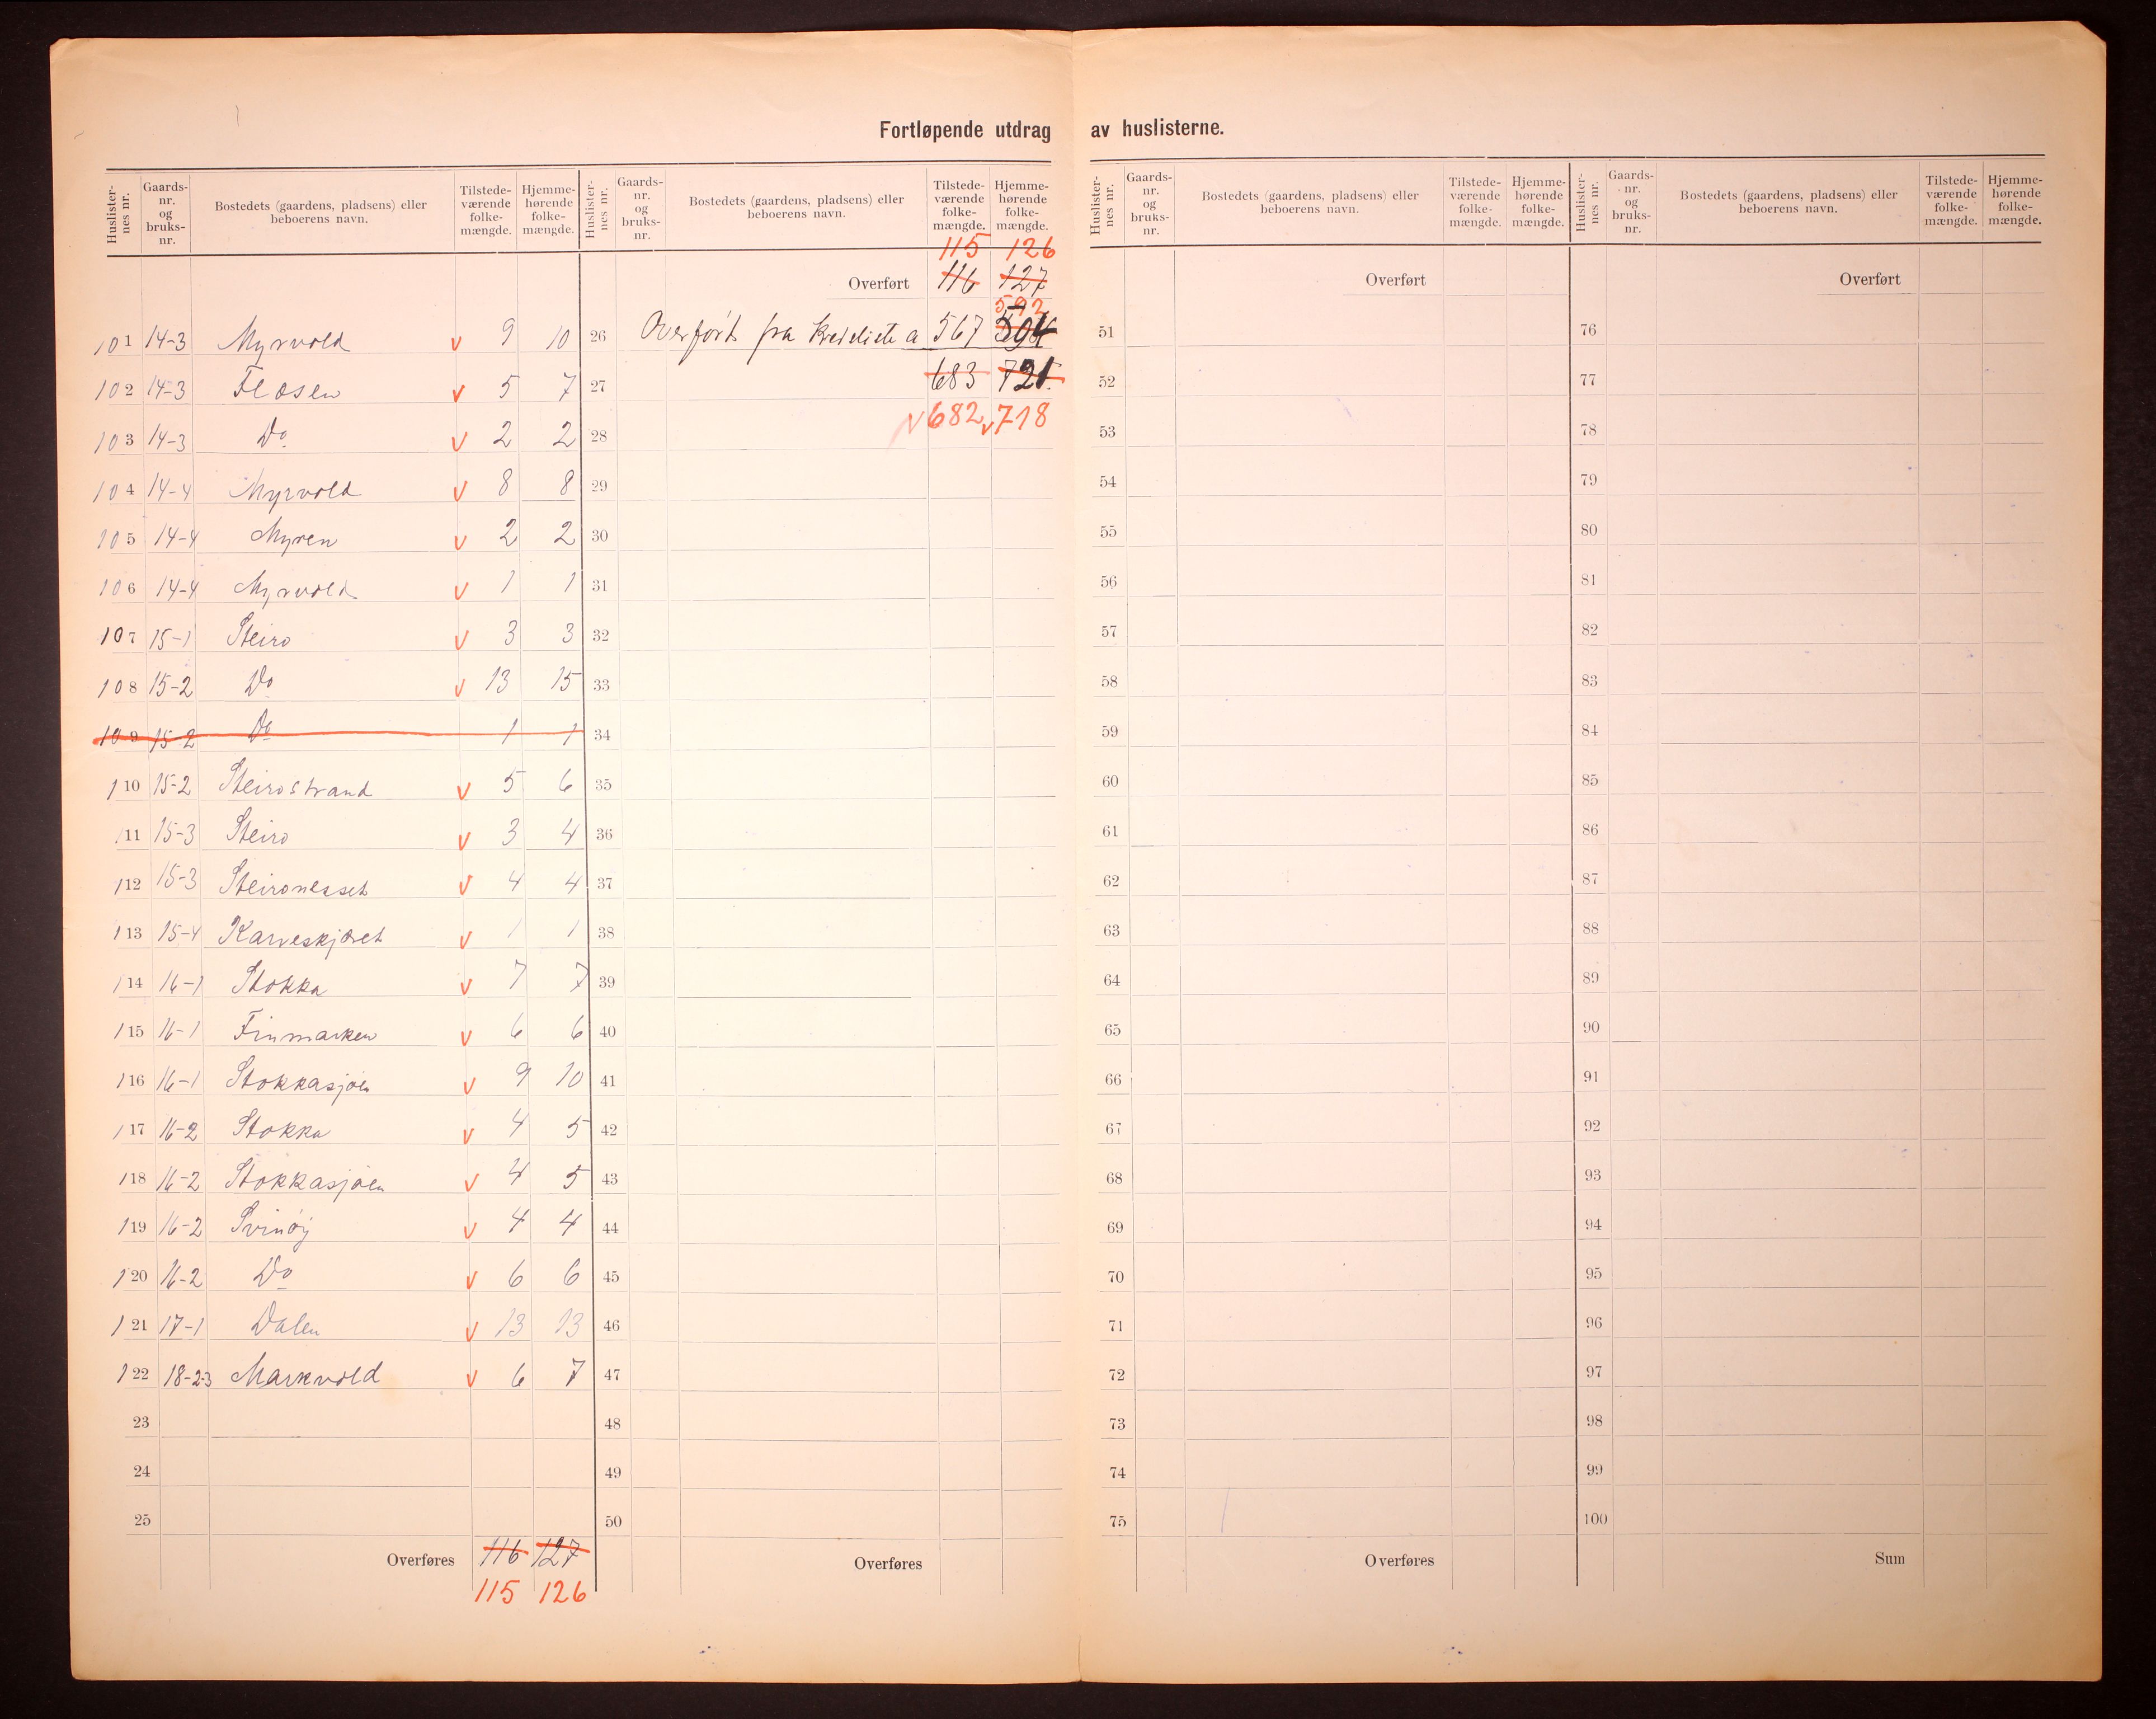 Fortløpende utdrag av huslisterne.
Huslister-nes nr. Gaards-nr. og bruks-nr. Bostedets (gaardens, pladsens) eller beboerens navn. Tilstede-værende folke-mængde. Hjemme-hørende folke-mængde.
101 14-3 Myrvold v 9 10
102 14-3 Flosen v 5 7
103 14-3 Do v 2 2
104 14-4 Myrvold v 8 8
105 14-4 Myren v 2 2
106 14-4 Myrvold v 1 1
107 15-1 Steiro v 3 3
108 15-2 Do v 13 15
109 15-2 Do 1 1
110 15-2 Steirostrand v 5 6
111 15-3 Steiro v 3 4
112 15-3 Steironesset v 4 4
113 15-4 Karveskjæret v 1 1
114 16-1 Stokka v 7 7
115 16-1 Finmarken v 6 6
116 16-1 Stokkasjøen v 9 10
117 16-2 Stokka v 4 5
118 16-2 Stokkasjøen v 4 5
119 16-2 Svinøy v 4 4
120 16-2 Do v 6 6
121 17-1 Dalen v 13 13
122 18-2-3 Markvold v 6 7
23
24
25
Overføres 116 127
115 126
Huslister-nes nr. Gaards-nr. og bruks-nr. Bostedets (gaardens, pladsens) eller beboerens navn. Tilstede-værende folke-mængde. Hjemme-hørende folke-mængde.
115 126
Overført 116 127
592
26 Overført fra Kredsliste a 567 594
27 683 721
28 v 682 v 718
29
30
31
32
33
34
35
36
37
38
39
40
41
42
43
44
45
46
47
48
49
50
Overføres
Huslister-nes nr. Gaards-nr. og bruks-nr. Bostedets (gaardens, pladsens) eller beboerens navn. Tilstede-værende folke-mængde. Hjemme-hørende folke-mængde.
Overført
51
52
53
54
55
56
57
58
59
60
61
62
63
64
65
66
67
68
69
70
71
72
73
74
75
Overføres
Huslister-nes nr. Gaards-nr. og bruks-nr. Bostedets (gaardens, pladsens) eller beboerens navn. Tilstede-værende folke-mængde. Hjemme-hørende folke-mængde.
Overført
76
77
78
79
80
81
82
83
84
85
86
87
88
89
90
91
92
93
94
95
96
97
98
99
100
Sum